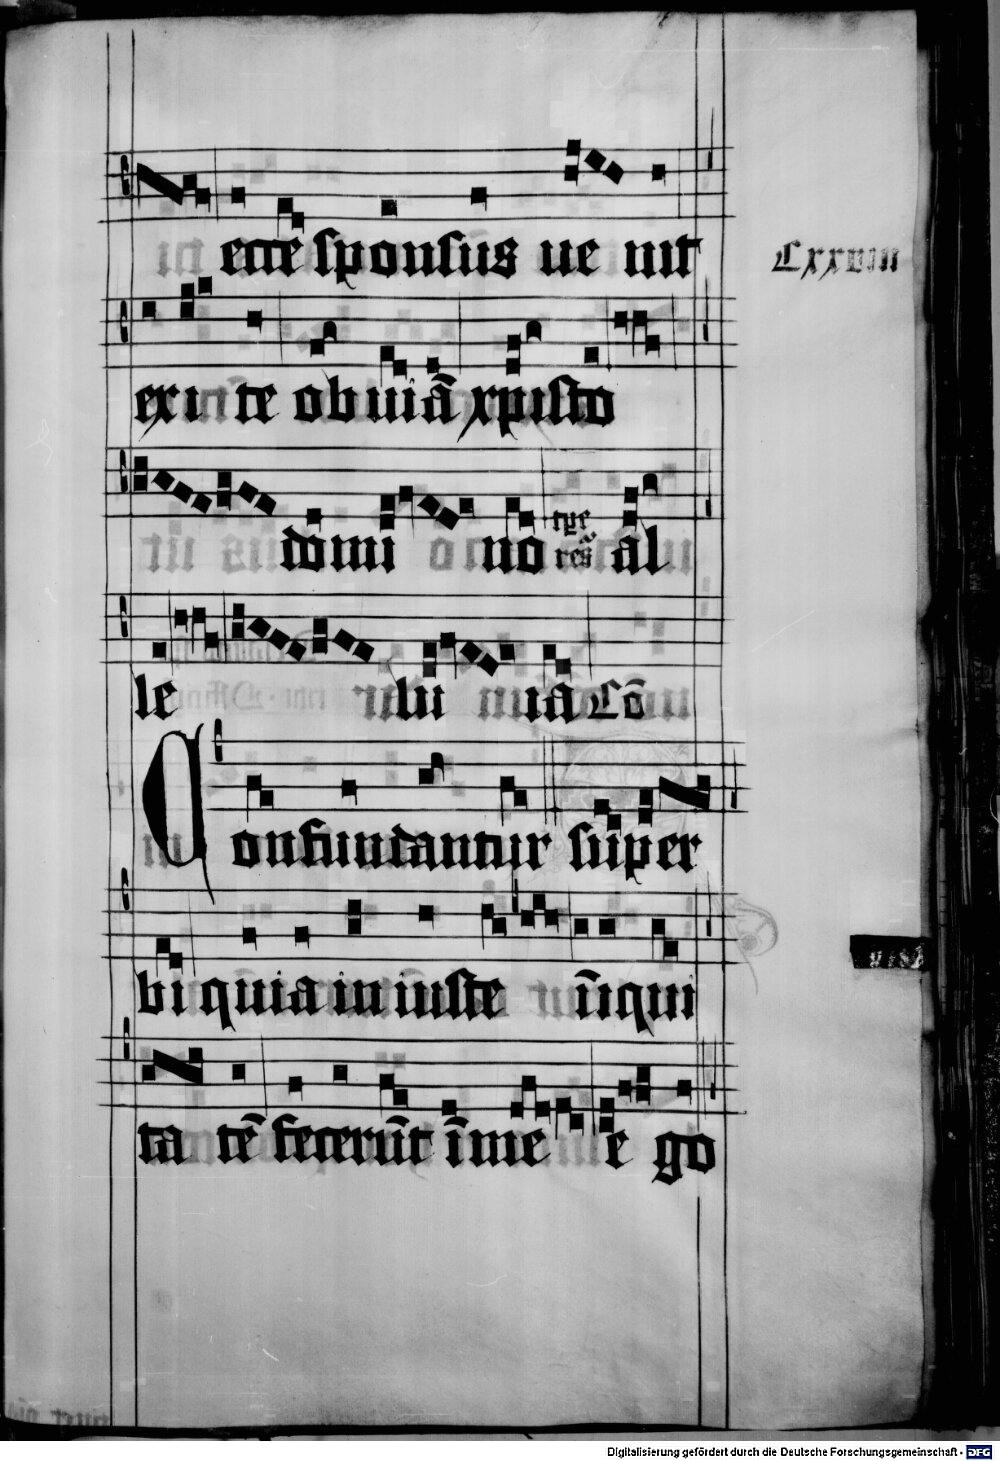 ecce sponsus ue nit
Cxxviii
exi te obuiā xpisto
domi no tpe res al
le lu ia Cō
Confundantur super
bi quia iniuste īiqui
ta tē fecerūt ī me ego
Digitalisierung gefördert durch die Deutsche Forschungsgemeinschaft - DFG